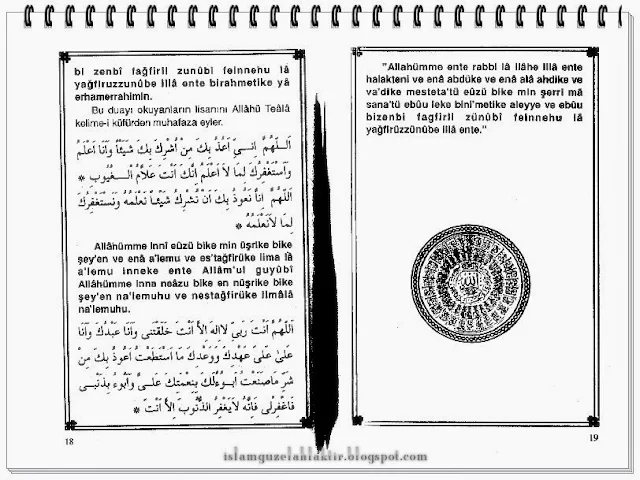 bi zenbî fağfirli zunûbî feinnehu lâ
yağfiruzzunûbe illâ ente birahmetike yâ
erhamerrahimin.
Bu duayı okuyanların lisanını Allâhü Teâlâ
kelime-i küfürden muhafaza eyler.
اَللّٰهُمَّ اِنِّى اَعُذُ بِكَ مِنْ اُشْرِكَ بِكَ شَيْئًا وَاَنَا اَعْلَمُ
وَاَسْتَغْفِرُكَ لِمَا لَا اَعْلَمُ اِنَّكَ اَنْتَ عَلَّامُ الْغُيُوبِ *
اَللّٰهُمَّ اِنَّا نَعُوذُ بِكَ اَنْ نُشْرِكَ شَيْئًا نَعْلَمُهُ وَنَسْتَغْفِرُكَ
لِمَا لَانَعْلَمُهُ *
Allâhümme innî eûzü bike min üşrike bike
şey'en ve enâ a'lemu ve es'tağfirüke lima lâ
a'lemu inneke ente Allâm'ul guyûbî
Allâhümme inna neâzu bike en nüşrike bike
şey'en na'lemuhu ve nestağfirüke limâlâ
na'lemuhu.
اَللّٰهُمَّ اَنْتَ رَبِّى لَااِلٰهَ اِلَّا اَنْتَ خَلَقْتَنِى وَاَنَا عَبْدُكَ وَاَنَا
عَلٰى عَلٰى عَهْدِكَ وَوَعْدِكَ مَا اسْتَطَعْتُ اَعُوذُ بِكَ مِنْ
شَرِّ مَاصَنَعْتُ اَبُوءُلَكَ بِنِعْمَتِكَ عَلَىَّ وَاَبُوءُ بِذَنْبِى
فَاغْفِرْلِى فَاِنَّهُ لَايَغْفِرُ الذُّنُوبَ اِلَّا اَنْتَ *
18
"Allahümme ente rabbi lâ ilâhe illâ ente
halakteni ve enâ abdüke ve enâ alâ ahdike ve
va'dike mesteta'tü eûzü bike min şerri mâ
sana'tü ebûu leke bini'metike aleyye ve ebûu
bizenbi fagfirli zünûbi feinnehu lâ
yağfirûzzünûbe illâ ente."
19
islamguzelahlaktir.blogspot.com